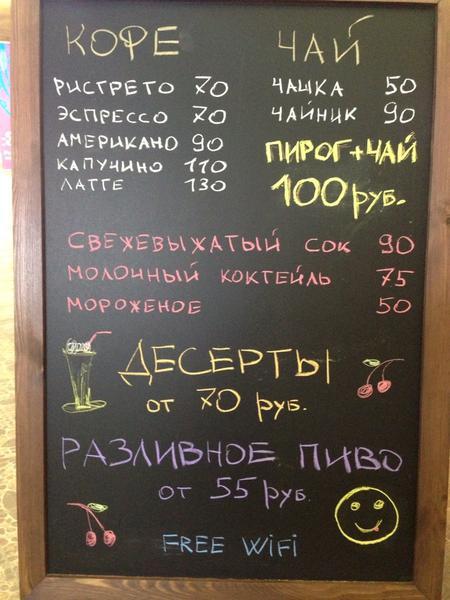 КОФЕ
РИСТРЕТО 70
ЭСПРЕССО 70
АМЕРИКАНО 90
КАПУЧИНО 110
ЛАТТЕ 130
ЧАЙ
ЧАШКА 50
ЧАЙНИК 90
ПИРОГ+ЧАЙ
100 руб.
СВЕЖЕВЫЖАТЫЙ СОК 90
МОЛОЧНЫЙ КОКТЕЙЛЬ 75
МОРОЖЕНОЕ 50
ДЕСЕРТЫ
от 70 руб.
РАЗЛИВНОЕ ПИВО
от 55 руб.
FREE WiFi